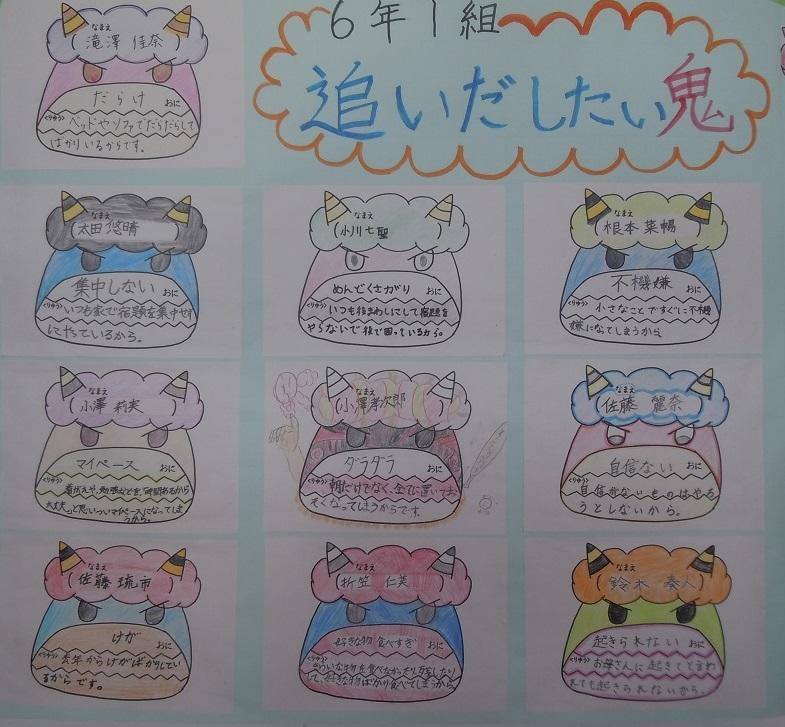 6年1組
追いだしたい鬼
なまえ
(滝澤 佳奈)
だらけ おに
<りゆう> ベッドやソファでだらだらして
ばかりいるからです。
なまえ
(太田 悠晴)
集中しない おに
<りゆう> いつも家で宿題を集中せず
にやっているから。
なまえ
(小川 七聖)
めんどくさがり おに
<りゆう> いつも後まわしにして宿題を
やらないで後で困っているから。
なまえ
(根本 菜暢)
不機嫌 おに
<りゆう> 小さなことですぐに不機
嫌になってしまうから。
なまえ
(小澤 莉実)
マイペース おに
<りゆう> 着がえや、勉強などを、「時間あるから
大丈夫」と思いついマイペースになってしま
うから。
なまえ
(小澤 孝次郎)
ダラダラ おに
<りゆう> 朝だけでなく、全てに置いてお
そくなってしまうからです。
なまえ
(佐藤 麗奈)
自信ない おに
<りゆう> 自信がないものはやろ
うとしないから。
なまえ
(佐藤 琉市)
けが おに
<りゆう> 去年からけがばかりしてい
るからです。
なまえ
(折笠 仁美)
好きな物 食べすぎ おに
<りゆう> きらいな物を食べなかったり
して、好きな物ばかり食べてしまうから。
なまえ
(鈴木 奏人)
起きられない おに
<りゆう> お母さんに起きてと言わ
れても起きられないから。